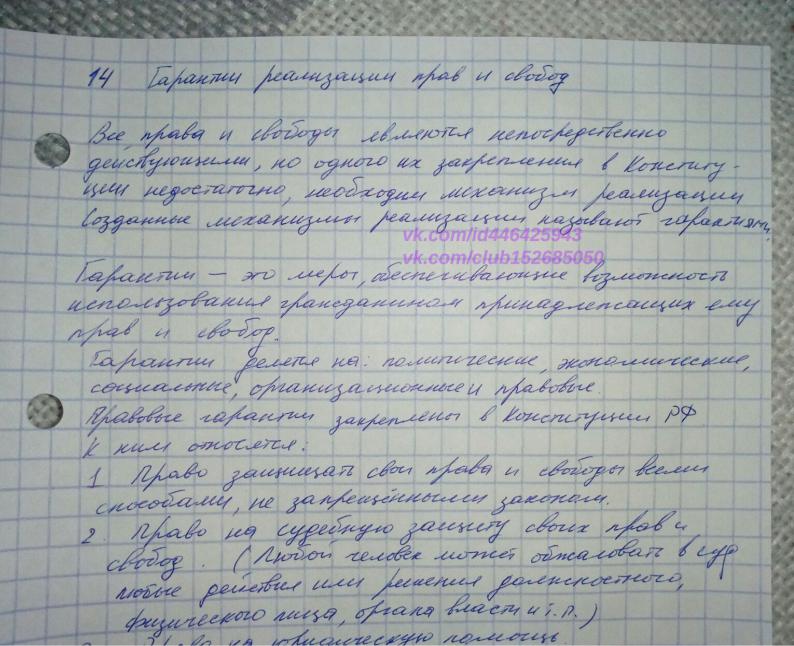 14 Гарантии реализации прав и свобод
Все права и свободы являются непосредственно
действующими, но одного их закрепления в Конститу-
ции недостаточно, необходим механизм реализации
Созданные механизмы реализации называют гарантиями.
vk.com/id446425943
vk.com/club152685050
Гарантии — это меры, обеспечивающие возможность
использования гражданином принадлежащих ему
прав и свобод.
Гарантии делятся на: политические, экономические,
социальные, организационные и правовые.
Правовые гарантии закреплены в Конституции РФ
К ним относятся:
1 Право защищать свои права и свободы всеми
способами, не запрещёнными законом.
2. Право на судебную защиту своих прав и
свобод. (Любой человек может обжаловать в суд
любые действия или решения должностного,
физического лица, органа власти и т.п.)
на юридическую помощь